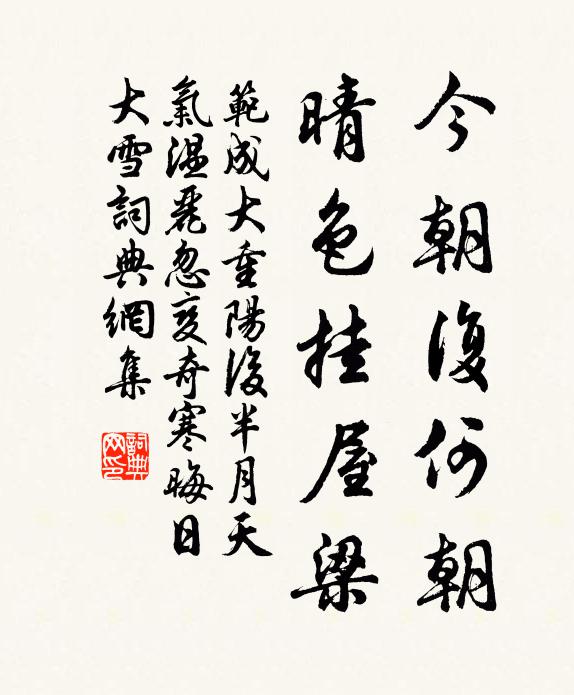 今朝復何朝
晴色挂屋梁
範成大重陽後半月天
氣溫麗忽變奇寒晦日
大雪詞典網集
詞典网印